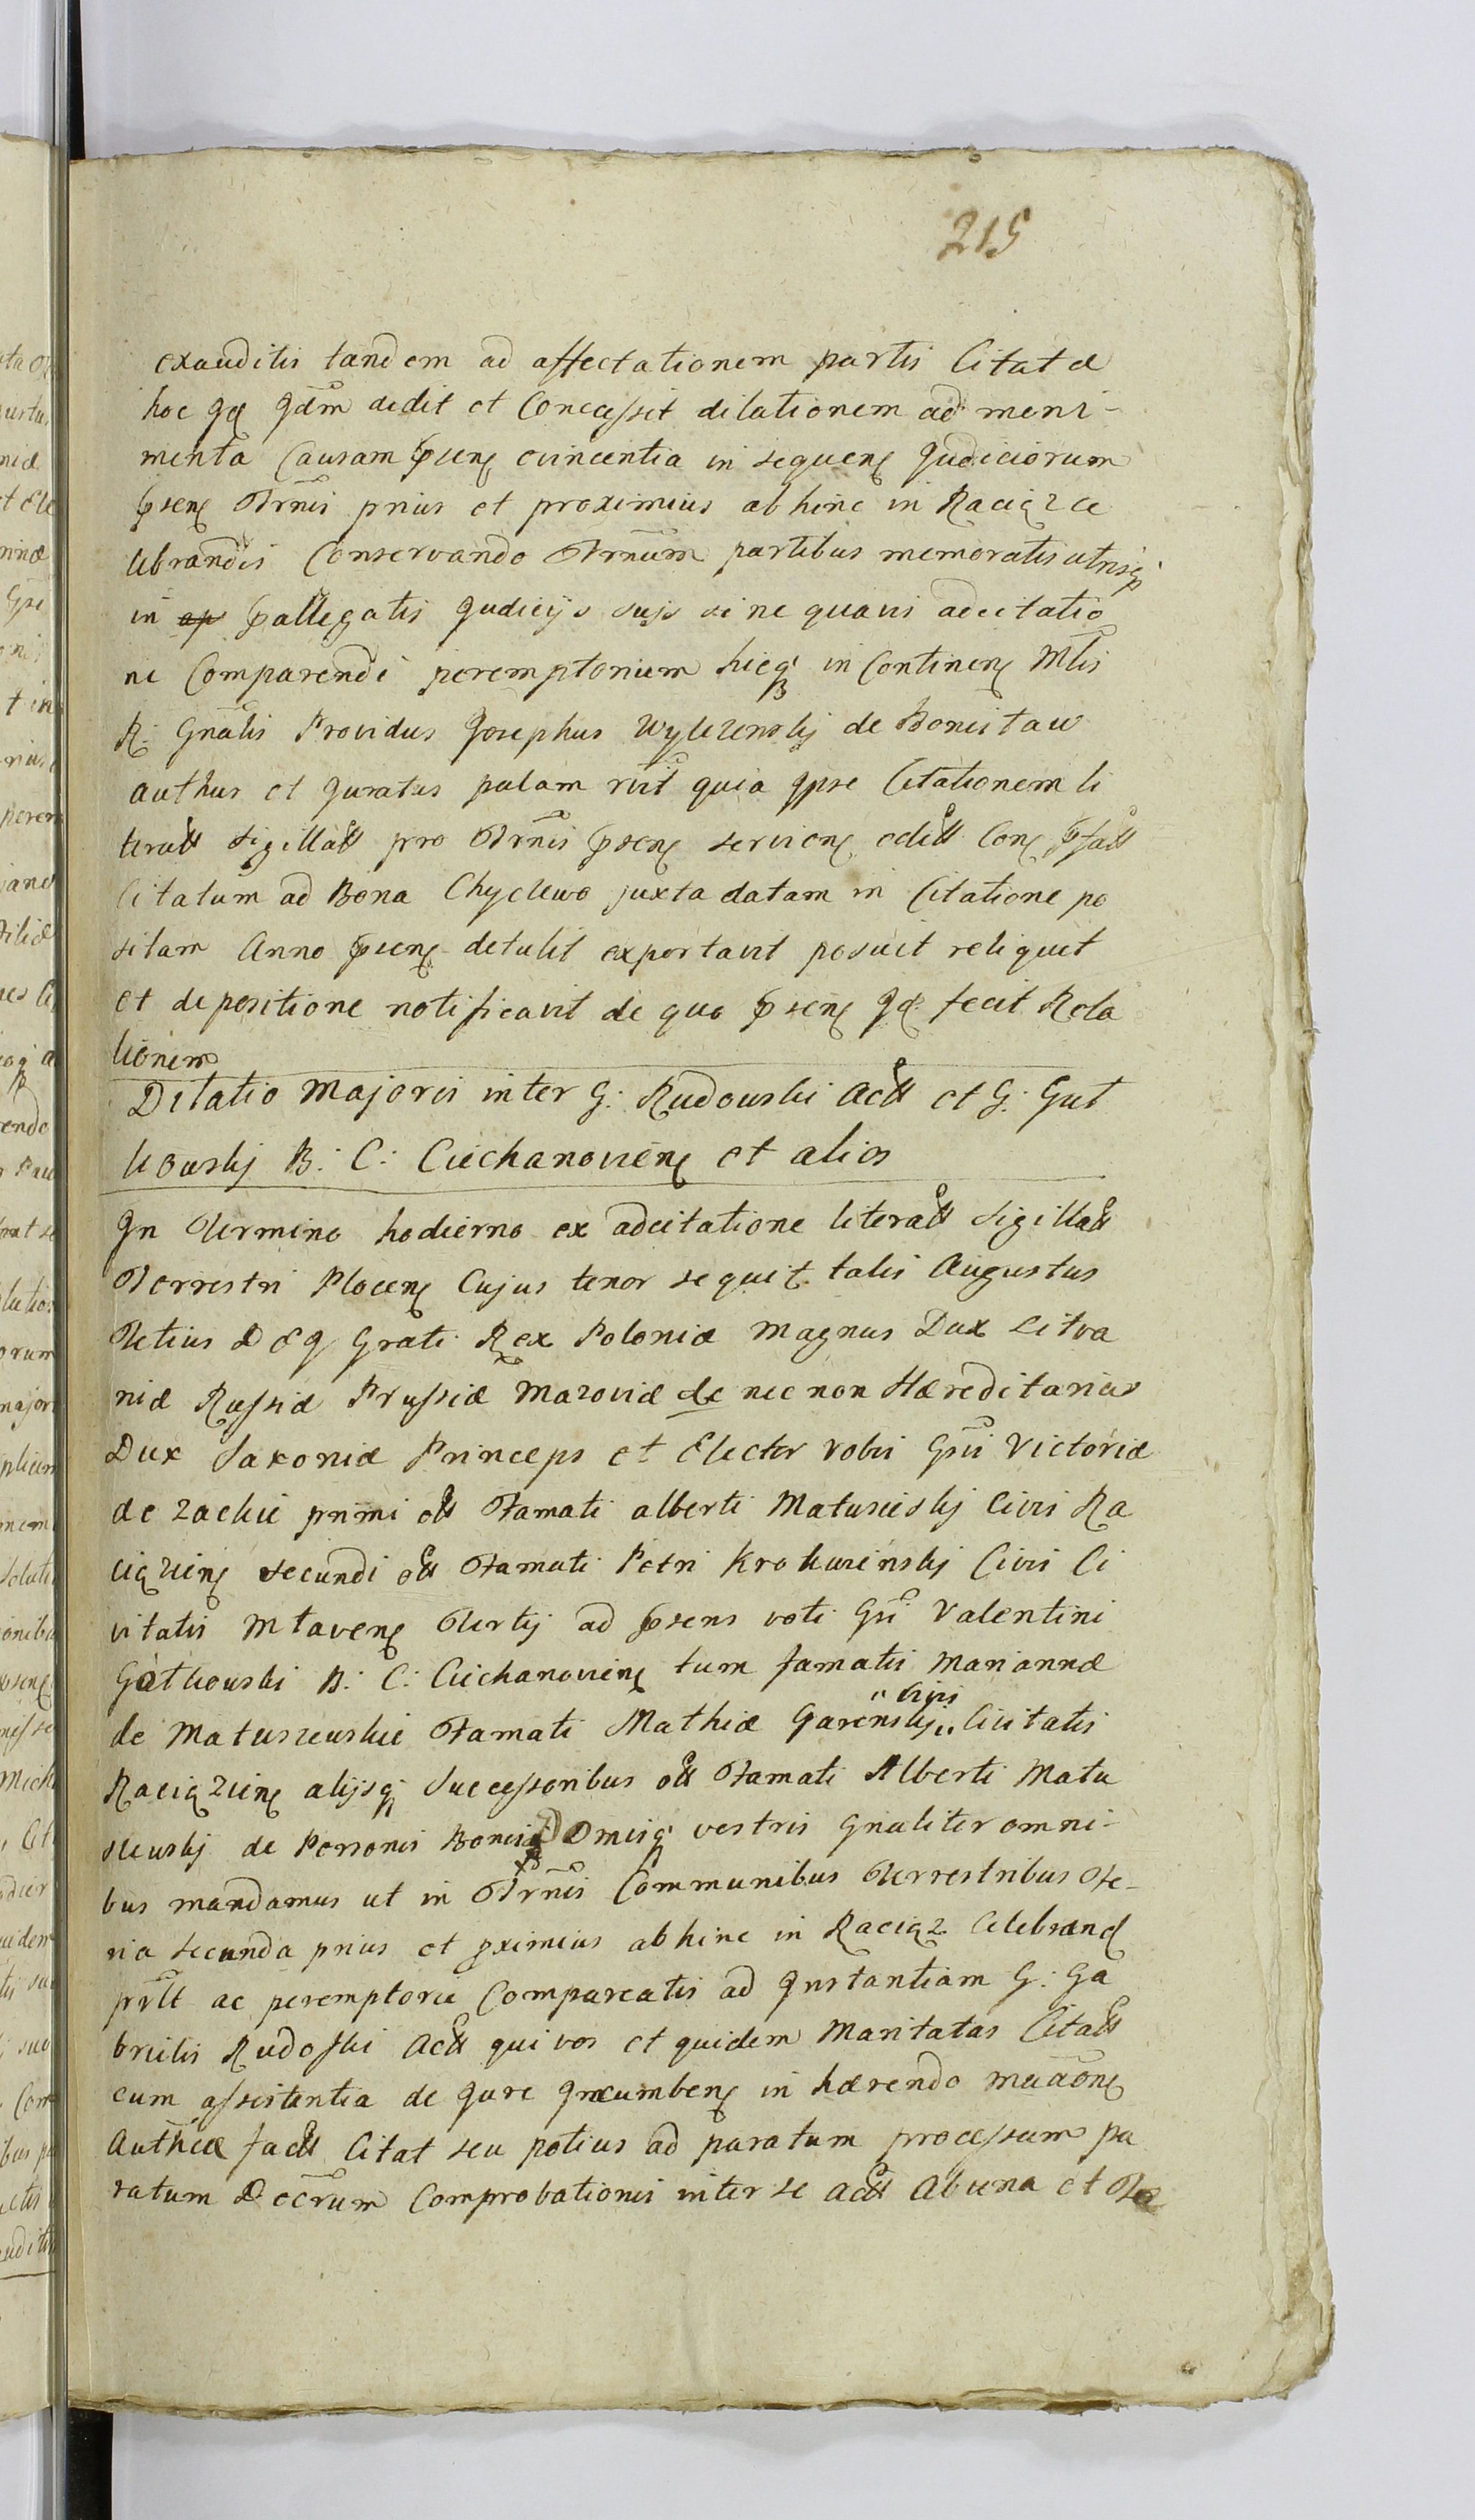 215
exauditis tandem ad affectationem partis Citatæ
hoc Jd͞m dedit et Concessit dilationem ad muni-
menta Causam pseñ evincentia in sequeñ Judiciorum
pseñ Trnis prius et proximius abhinc in Raciąz ce
lebrandis Conservando Trnum partibus memoratis utrisq́
in pallegatis Judicijs suis sine quavis adcitatio
ne Comparendi peremptorium hicq́ in Contineñ Mtis
R. Gnalis Providus Josephus Wylezenskj de
authus et Juratus palam rvit quia Ipse Citationem li
terałł sigillałł pro Trnis pseñ servieñ
Citatum ad Bona Chyczewo juxta datam in Citatione po
sitam Anno pseñ detulit exportavit posuit reliquit
et depositione notificavit de quo pseñ fecit Rela
tionem
Dilatio Majoris inter G: Rudowski Actł et G: Gut
kowskj B: C: Ciechanovieñ et alios
In Termino hodierno ex adcitatione literałł Sigillałł
Terrestri Ploceñ Cujus tenor sequit. talis Augustus
Tetius D G Grati Rex Poloniæ Magnus Dux Litva
niæ Russiæ Prussiæ Mazoviæ &c nec non Hæreditarius
Dux Saxoniæ Princeps et Elector vobis Gsii Victoriæ
de Zackie primi Famati alberti Matusieskj Civis Ra
ciązieñ secundi Famati Petri Krokwinskj Civis Ci
vitatis Mlaveñ Tertij ad psens voti Gsi Valentini
Gutkowski B: C: Ciechanovieñ tum famatis Mariannæ
de Matuszewskie Famati Mathiæ Garenskj „ Civis „ Civitatis
Raciązieñ alijsq́ Successoribus Famati Alberti Matu
szewskj de Personis Bonis Omisq́ vestris Gnaliter omni-
bus mandamus ut in Trnis Communibus Terrestribus Fe-
ria secunda prius et pximius abhinc in Raciąz Celebrand
prłt ac peremptorie Compareatis ad Instantiam G: Ga
brielis Rudoski Actł qui vos et quidem Maritatas Citałł
cum assistentia de Jure Incumbeñ in hærendo
Authcæ factł Citat seu potius ad paratum processum pa
ratum Decrum Comprobationis inter se Actł Ab una et